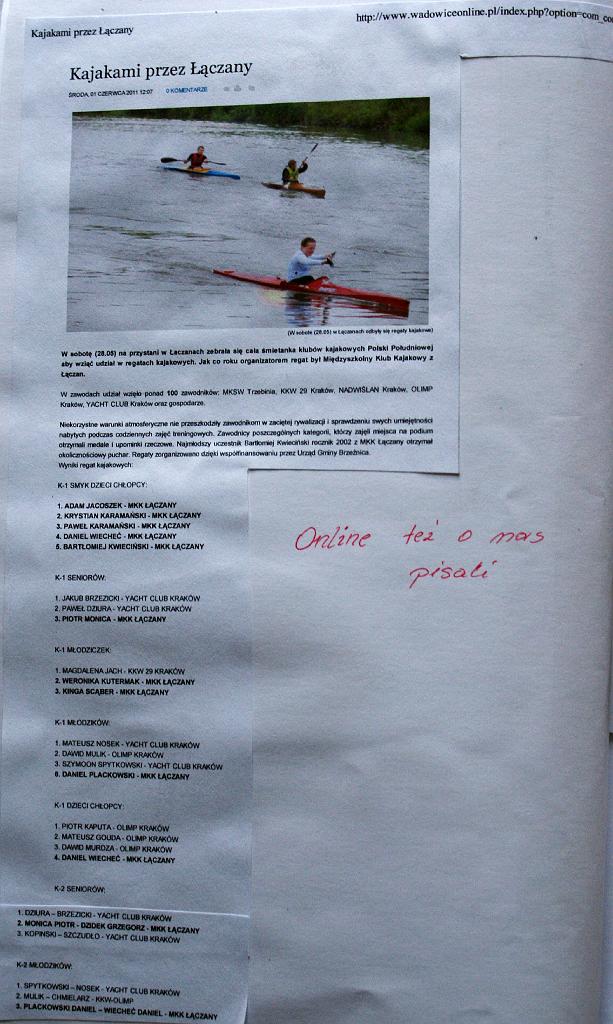 Kajakami przez Łączany
http://www.wadowiceonline.pl/index.php?option=com_co
Kajakami przez Łączany
ŚRODA, 01 CZERWCA 2011 12:07 0 KOMENTARZE
(W sobotę (28.05) w Łączanach odbyły się regaty kajakowe)
W sobotę (28.05) na przystani w Łączanach zebrała się cała śmietanka klubów kajakowych Polski Południowej
aby wziąć udział w regatach kajakowych. Jak co roku organizatorem regat był Międzyszkolny Klub Kajakowy z
Łączan.
W zawodach udział wzięło ponad 100 zawodników: MKSW Trzebinia, KKW 29 Kraków, NADWIŚLAN Kraków, OLIMP
Kraków, YACHT CLUB Kraków oraz gospodarze.
Niekorzystne warunki atmosferyczne nie przeszkodziły zawodnikom w zaciętej rywalizacji i sprawdzeniu swych umiejętności
nabytych podczas codziennych zajęć treningowych. Zawodnicy poszczególnych kategorii, którzy zajęli miejsca na podium
otrzymali medale i upominki rzeczowe. Najmłodszy uczestnik Bartłomiej Kwieciński rocznik 2002 z MKK Łączany otrzymał
okolicznościowy puchar. Regaty zorganizowano dzięki współfinansowaniu przez Urząd Gminy Brzeźnica.
Wyniki regat kajakowych:
K-1 SMYK DZIECI CHŁOPCY:
1. ADAM JACOSZEK - MKK ŁĄCZANY
2. KRYSTIAN KARAMAŃSKI - MKK ŁĄCZANY
3. PAWEŁ KARAMAŃSKI - MKK ŁĄCZANY
4. DANIEL WIECHEĆ - MKK ŁĄCZANY
5. BARTŁOMIEJ KWIECIŃSKI - MKK ŁĄCZANY
Online też o nas
pisali
K-1 SENIORÓW:
1. JAKUB BRZEZICKI - YACHT CLUB KRAKÓW
2. PAWEŁ DZIURA - YACHT CLUB KRAKÓW
3. PIOTR MONICA - MKK ŁĄCZANY
K-1 MŁODZICZEK:
1. MAGDALENA JACH - KKW 29 KRAKÓW
2. WERONIKA KUTERMAK - MKK ŁĄCZANY
3. KINGA SCĄBER - MKK ŁĄCZANY
K-1 MŁODZIKÓW:
1. MATEUSZ NOSEK - YACHT CLUB KRAKÓW
2. DAWID MULIK - OLIMP KRAKÓW
3. SZYMOON SPYTKOWSKI - YACHT CLUB KRAKÓW
6. DANIEL PLACKOWSKI - MKK ŁĄCZANY
K-1 DZIECI CHŁOPCY:
1. PIOTR KAPUTA - OLIMP KRAKÓW
2. MATEUSZ GOUDA - OLIMP KRAKÓW
3. DAWID MURDZA - OLIMP KRAKÓW
4. DANIEL WIECHEĆ - MKK ŁĄCZANY
K-2 SENIORÓW:
1. DZIURA – BRZEZICKI - YACHT CLUB KRAKÓW
2. MONICA PIOTR - DZIDEK GRZEGORZ - MKK ŁĄCZANY
3. KOPIŃSKI – SZCZUDŁO - YACHT CLUB KRAKÓW
K-2 MŁODZIKÓW:
1. SPYTKOWSKI – NOSEK - YACHT CLUB KRAKÓW
2. MULIK – CHMIELARZ - KKW-OLIMP
3. PLACKOWSKI DANIEL – WIECHEĆ DANIEL - MKK ŁĄCZANY